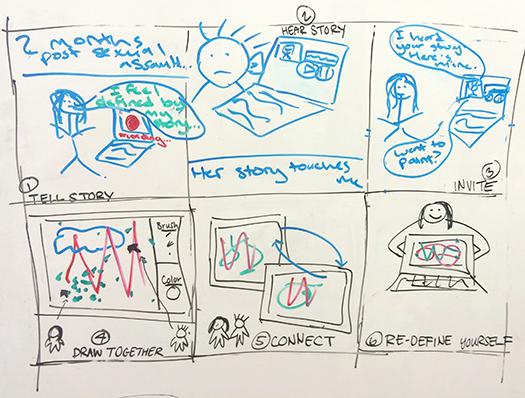 2 months
post sexual
assault...
I feel
defined by
my
story...
recording...
① TELL STORY
②
HEAR STORY
Her story touches
me
I heard
your story
Here is
mine.
Want to
paint?
③
INVITE
Brush
Color
④
DRAW TOGETHER
⑤ CONNECT
⑥ RE-DEFINE YOURSELF